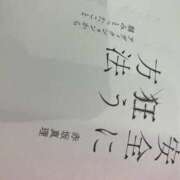 安全に
狂う
方法
赤坂真理
アディクションから
掴みとったこと